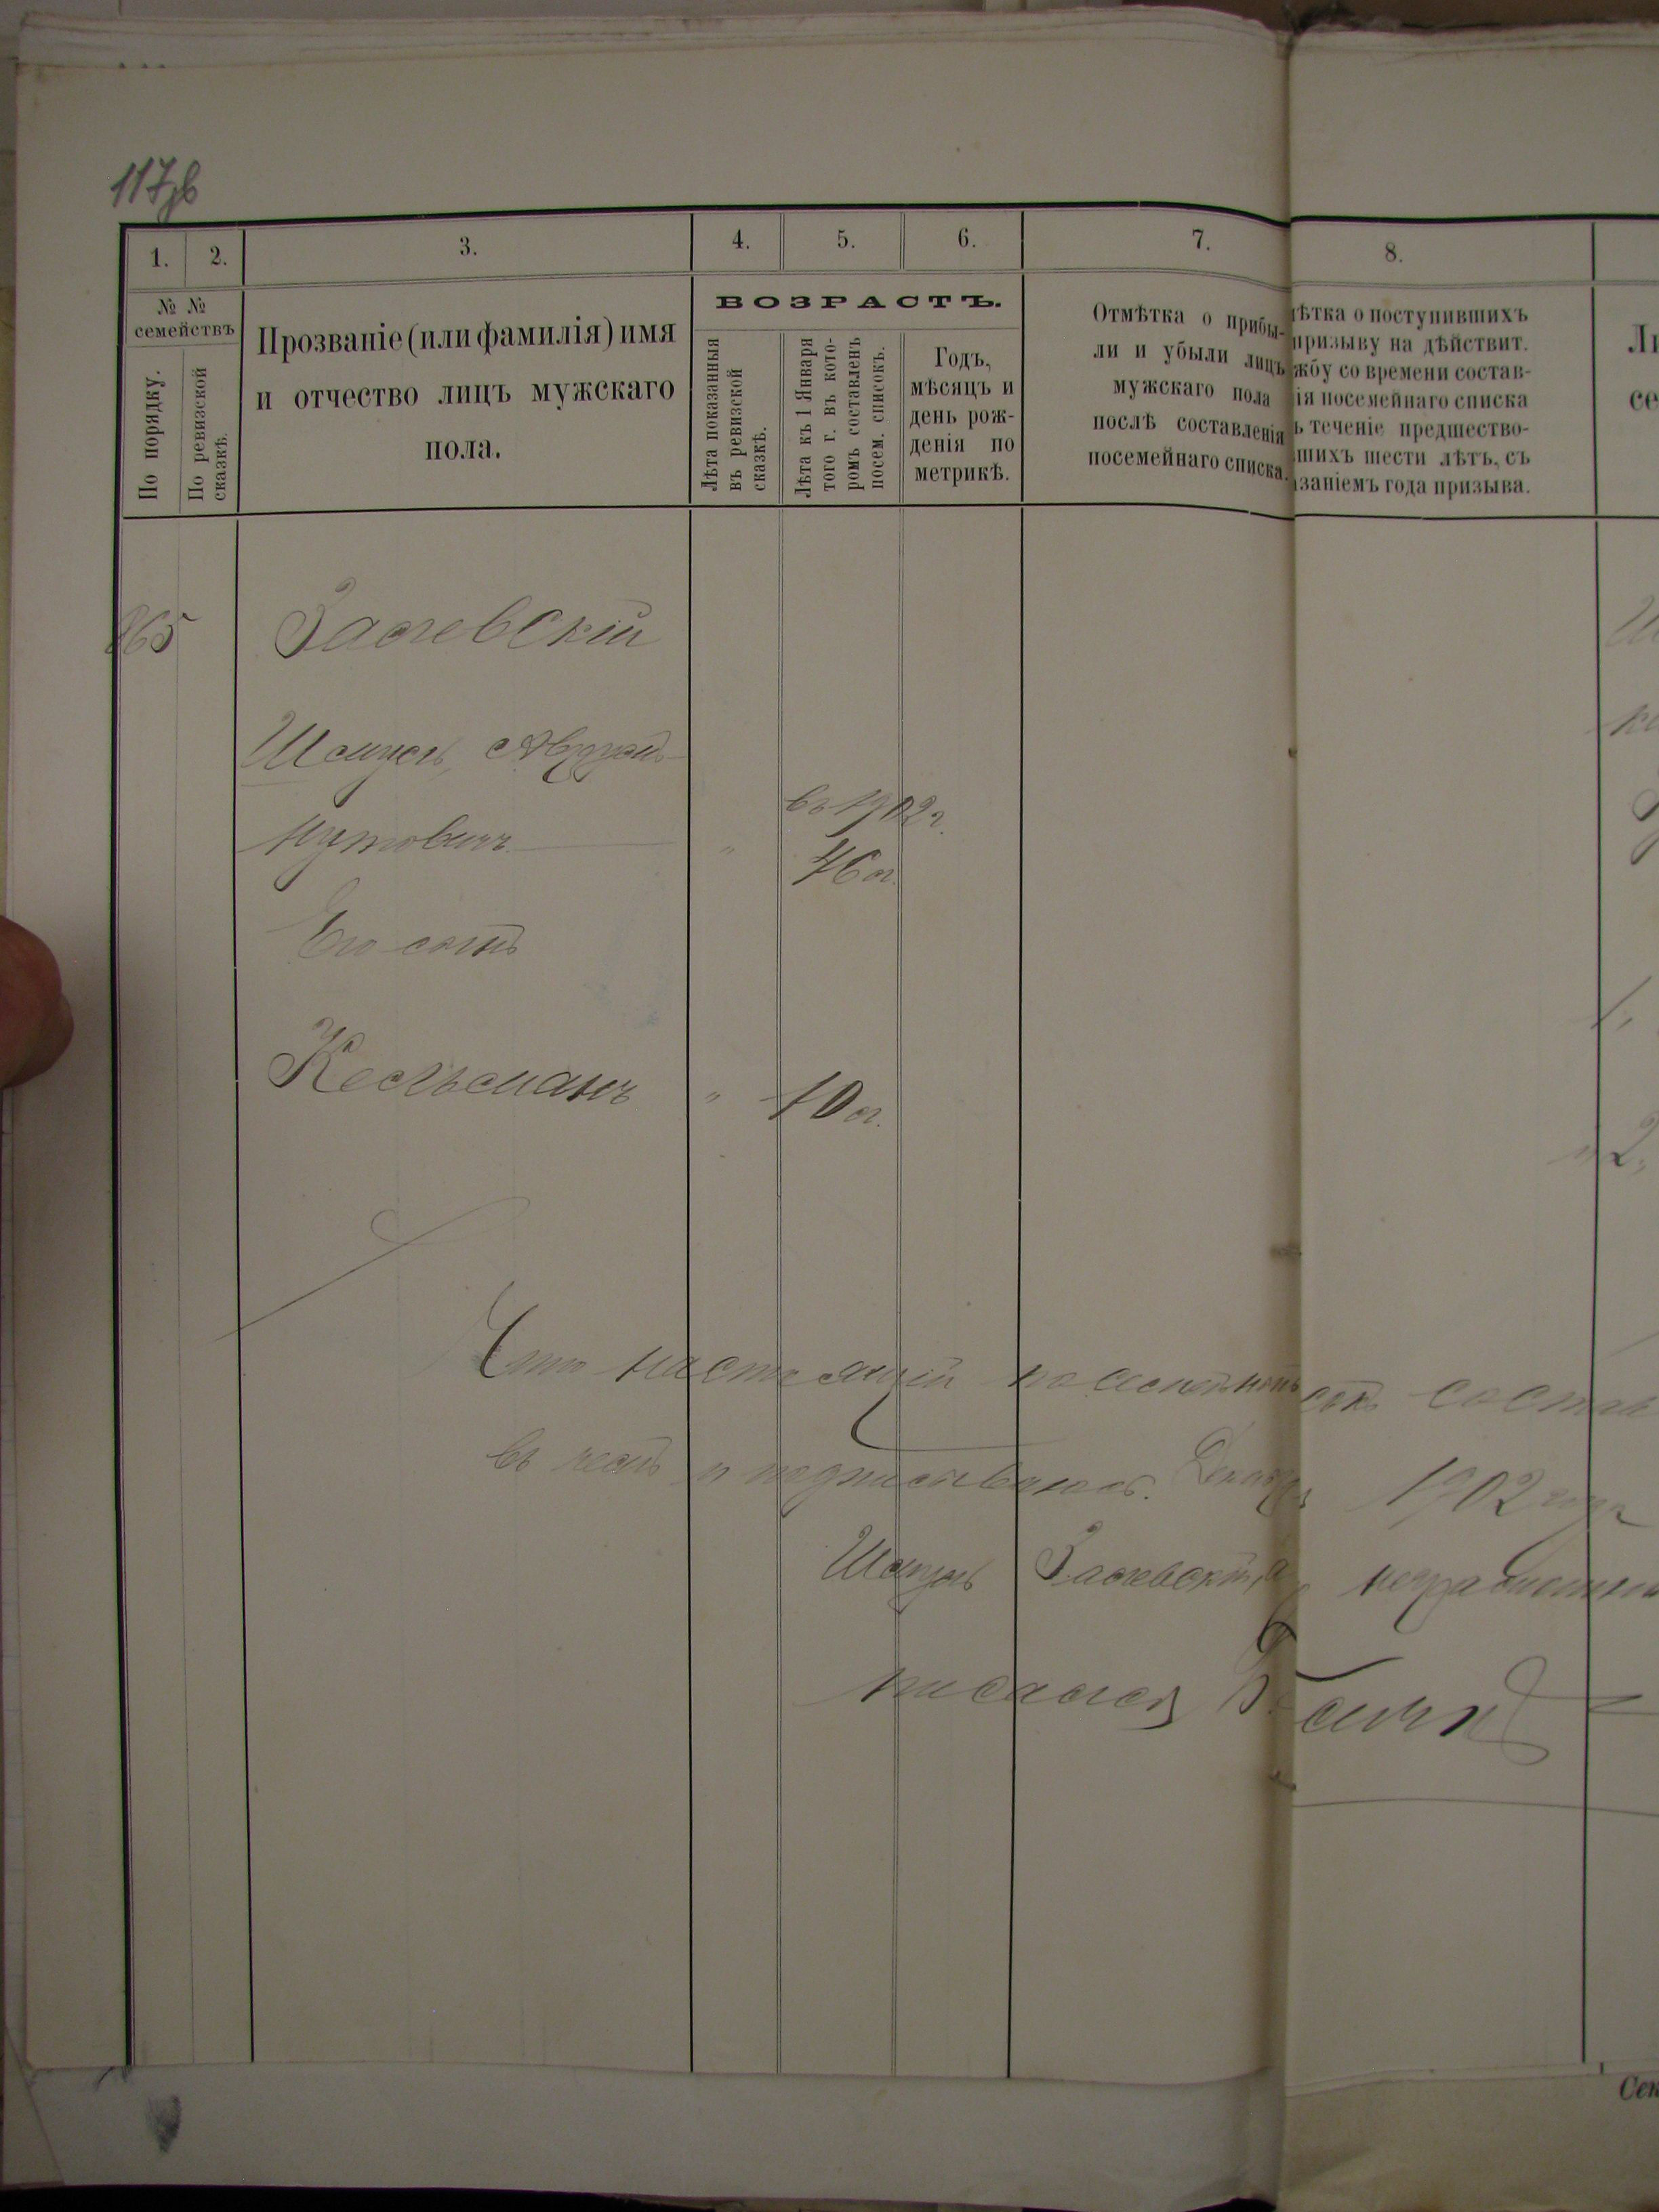 117об
1. 2. 3. 4. 5. 6. 7. 8.
№ №
семействъ
По порядку.
По ревизской
сказкѣ.
Прозваніе (или фамилія) имя
и отчество лицъ мужскаго
пола.
ВОЗРАСТЪ.
Лѣта показанныя
въ ревизской
сказкѣ.
Лѣта къ 1 Января
того г. въ кото-
ромъ составленъ
посем. списокъ.
Годъ,
мѣсяцъ и
день рож-
денія по
метрикѣ.
Отмѣтка о прибы-
ли и убыли лицъ
мужскаго пола
послѣ составленія
посемейнаго списка.
ѣтка о поступившихъ
призыву на дѣйствит.
жбу со времени состав-
ія посемейнаго списка
ь теченіе предшество-
шихъ шести лѣтъ, съ
азаніемъ года призыва.
865 Залевскій
Шмуль
въ 1902 г.
46 л.
Его сынъ
Кельманъ " 10 л.
Что настоящій
въ чемъ и подписываюсь. Декабря 1902 года
Шмуль Залевскій, а неграмотн
писался